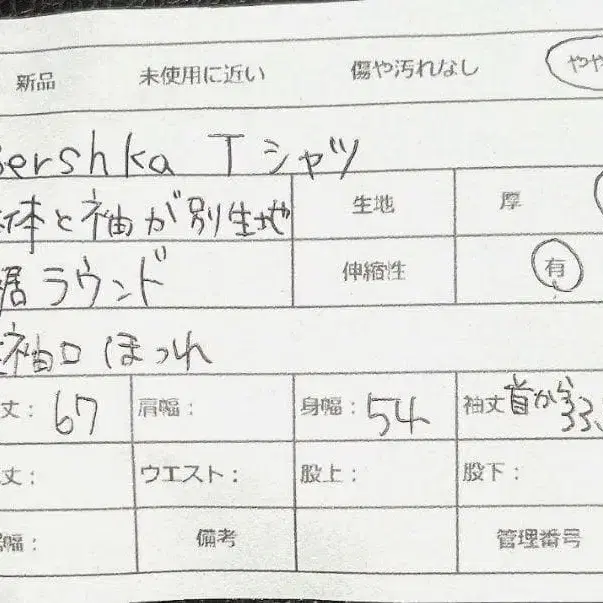 新品 未使用に近い 傷や汚れなし やや
Bershka Tシャツ
本と袖が別生地 生地 厚
裾ラウンド 伸縮性 有
袖口ほつれ
丈: 67 肩幅: 身幅: 54 袖丈 首から33.
丈: ウエスト: 股上: 股下:
幅: 備考 管理番号